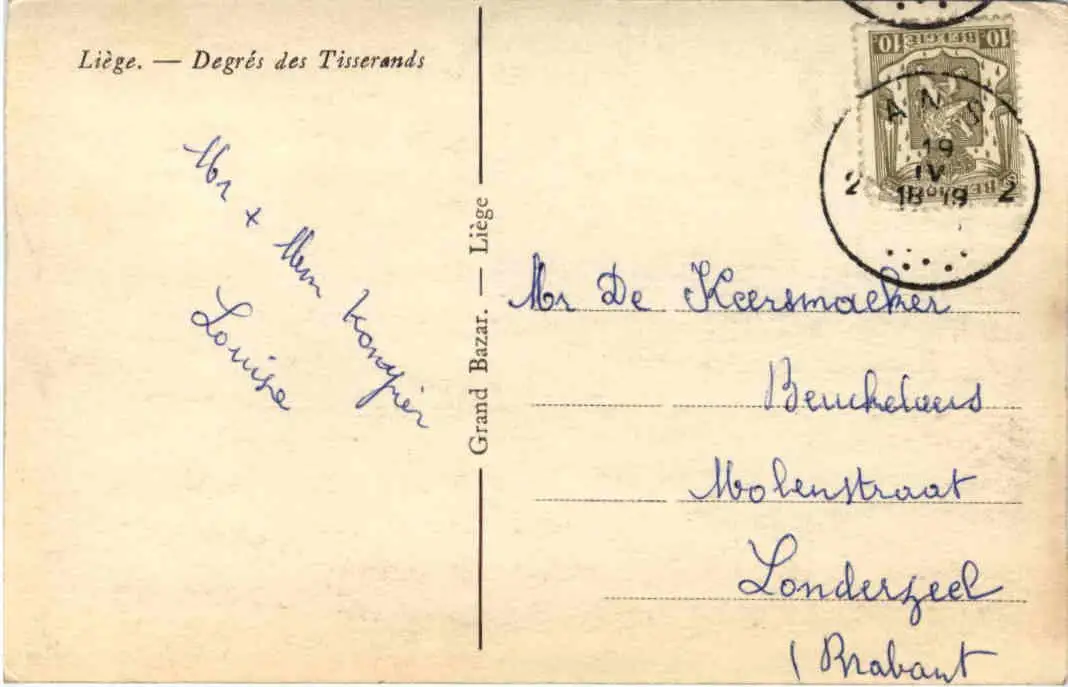 Liège. — Degrés des Tisserands
Mr x Mm
Louise
Grand Bazar. — Liège
10 BELGIE 10
ANS
19
IV
18-19
2 2
Mr De Keersmaeker
Beuckelaers
Molenstraat
Londerzeel
(Brabant